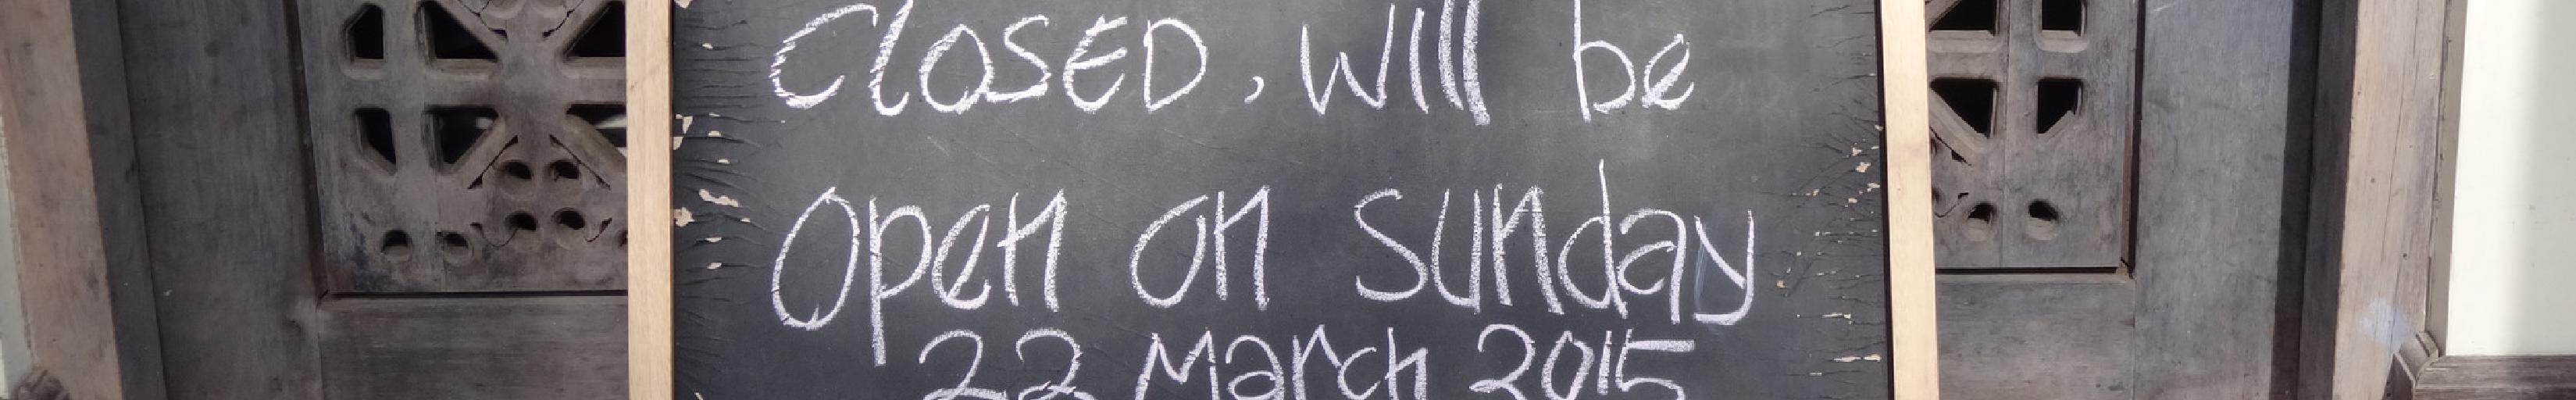 CLOSED, Will be
Open on Sunday
22 March 2015